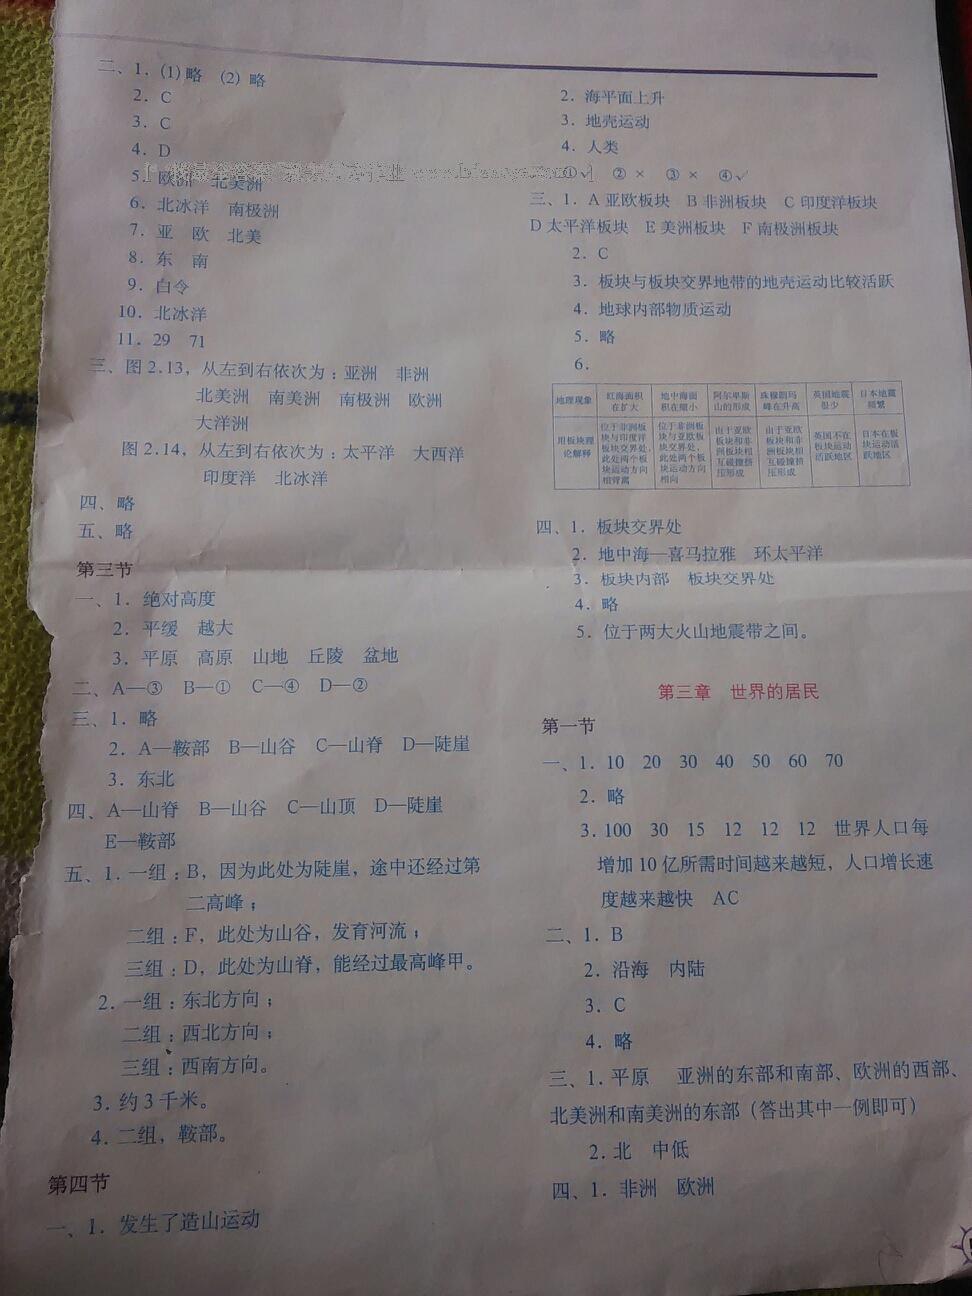 二、1. (1) 略 (2) 略
2. C
3. C
4. D
5. 欧洲 北美洲
6. 北冰洋 南极洲
7. 亚 欧 北美
8. 东 南
9. 白令
10. 北冰洋
11. 29 71
三、图 2.13，从左到右依次为：亚洲 非洲
北美洲 南美洲 南极洲 欧洲
大洋洲
图 2.14，从左到右依次为：太平洋 大西洋
印度洋 北冰洋
四、略
五、略
第三节
一、1. 绝对高度
2. 平缓 越大
3. 平原 高原 山地 丘陵 盆地
二、A—③ B—① C—④ D—②
三、1. 略
2. A—鞍部 B—山谷 C—山脊 D—陡崖
3. 东北
四、A—山脊 B—山谷 C—山顶 D—陡崖
E—鞍部
五、1. 一组：B，因为此处为陡崖，途中还经过第
二高峰；
二组：F，此处为山谷，发育河流；
三组：D，此处为山脊，能经过最高峰甲。
2. 一组：东北方向；
二组：西北方向；
三组：西南方向。
3. 约 3 千米。
4. 二组，鞍部。
第四节
一、1. 发生了造山运动
2. 海平面上升
3. 地壳运动
4. 人类
①√ ② × ③ × ④√
三、1. A 亚欧板块 B 非洲板块 C 印度洋板块
D 太平洋板块 E 美洲板块 F 南极洲板块
2. C
3. 板块与板块交界地带的地壳运动比较活跃
4. 地球内部物质运动
5. 略
6.
地理现象 红海面积在扩大 地中海面积在缩小 阿尔卑斯山的形成 珠穆朗玛峰在升高 英国地震很少 日本地震频繁
用板块理论解释 位于非洲板块与印度洋板块交界处，此处两个板块运动方向相背离 位于非洲板块与亚欧板块交界处，此处两个板块运动方向相向 由于亚欧板块和非洲板块相互碰撞挤压形成 由于亚欧板块和非洲板块相互碰撞挤压形成 英国不在板块运动活跃地区 日本在板块运动活跃地区
四、1. 板块交界处
2. 地中海—喜马拉雅 环太平洋
3. 板块内部 板块交界处
4. 略
5. 位于两大火山地震带之间。
第三章 世界的居民
第一节
一、1. 10 20 30 40 50 60 70
2. 略
3. 100 30 15 12 12 12 世界人口每
增加 10 亿所需时间越来越短，人口增长速
度越来越快 AC
二、1. B
2. 沿海 内陆
3. C
4. 略
三、1. 平原 亚洲的东部和南部、欧洲的西部、
北美洲和南美洲的东部（答出其中一例即可）
2. 北 中低
四、1. 非洲 欧洲